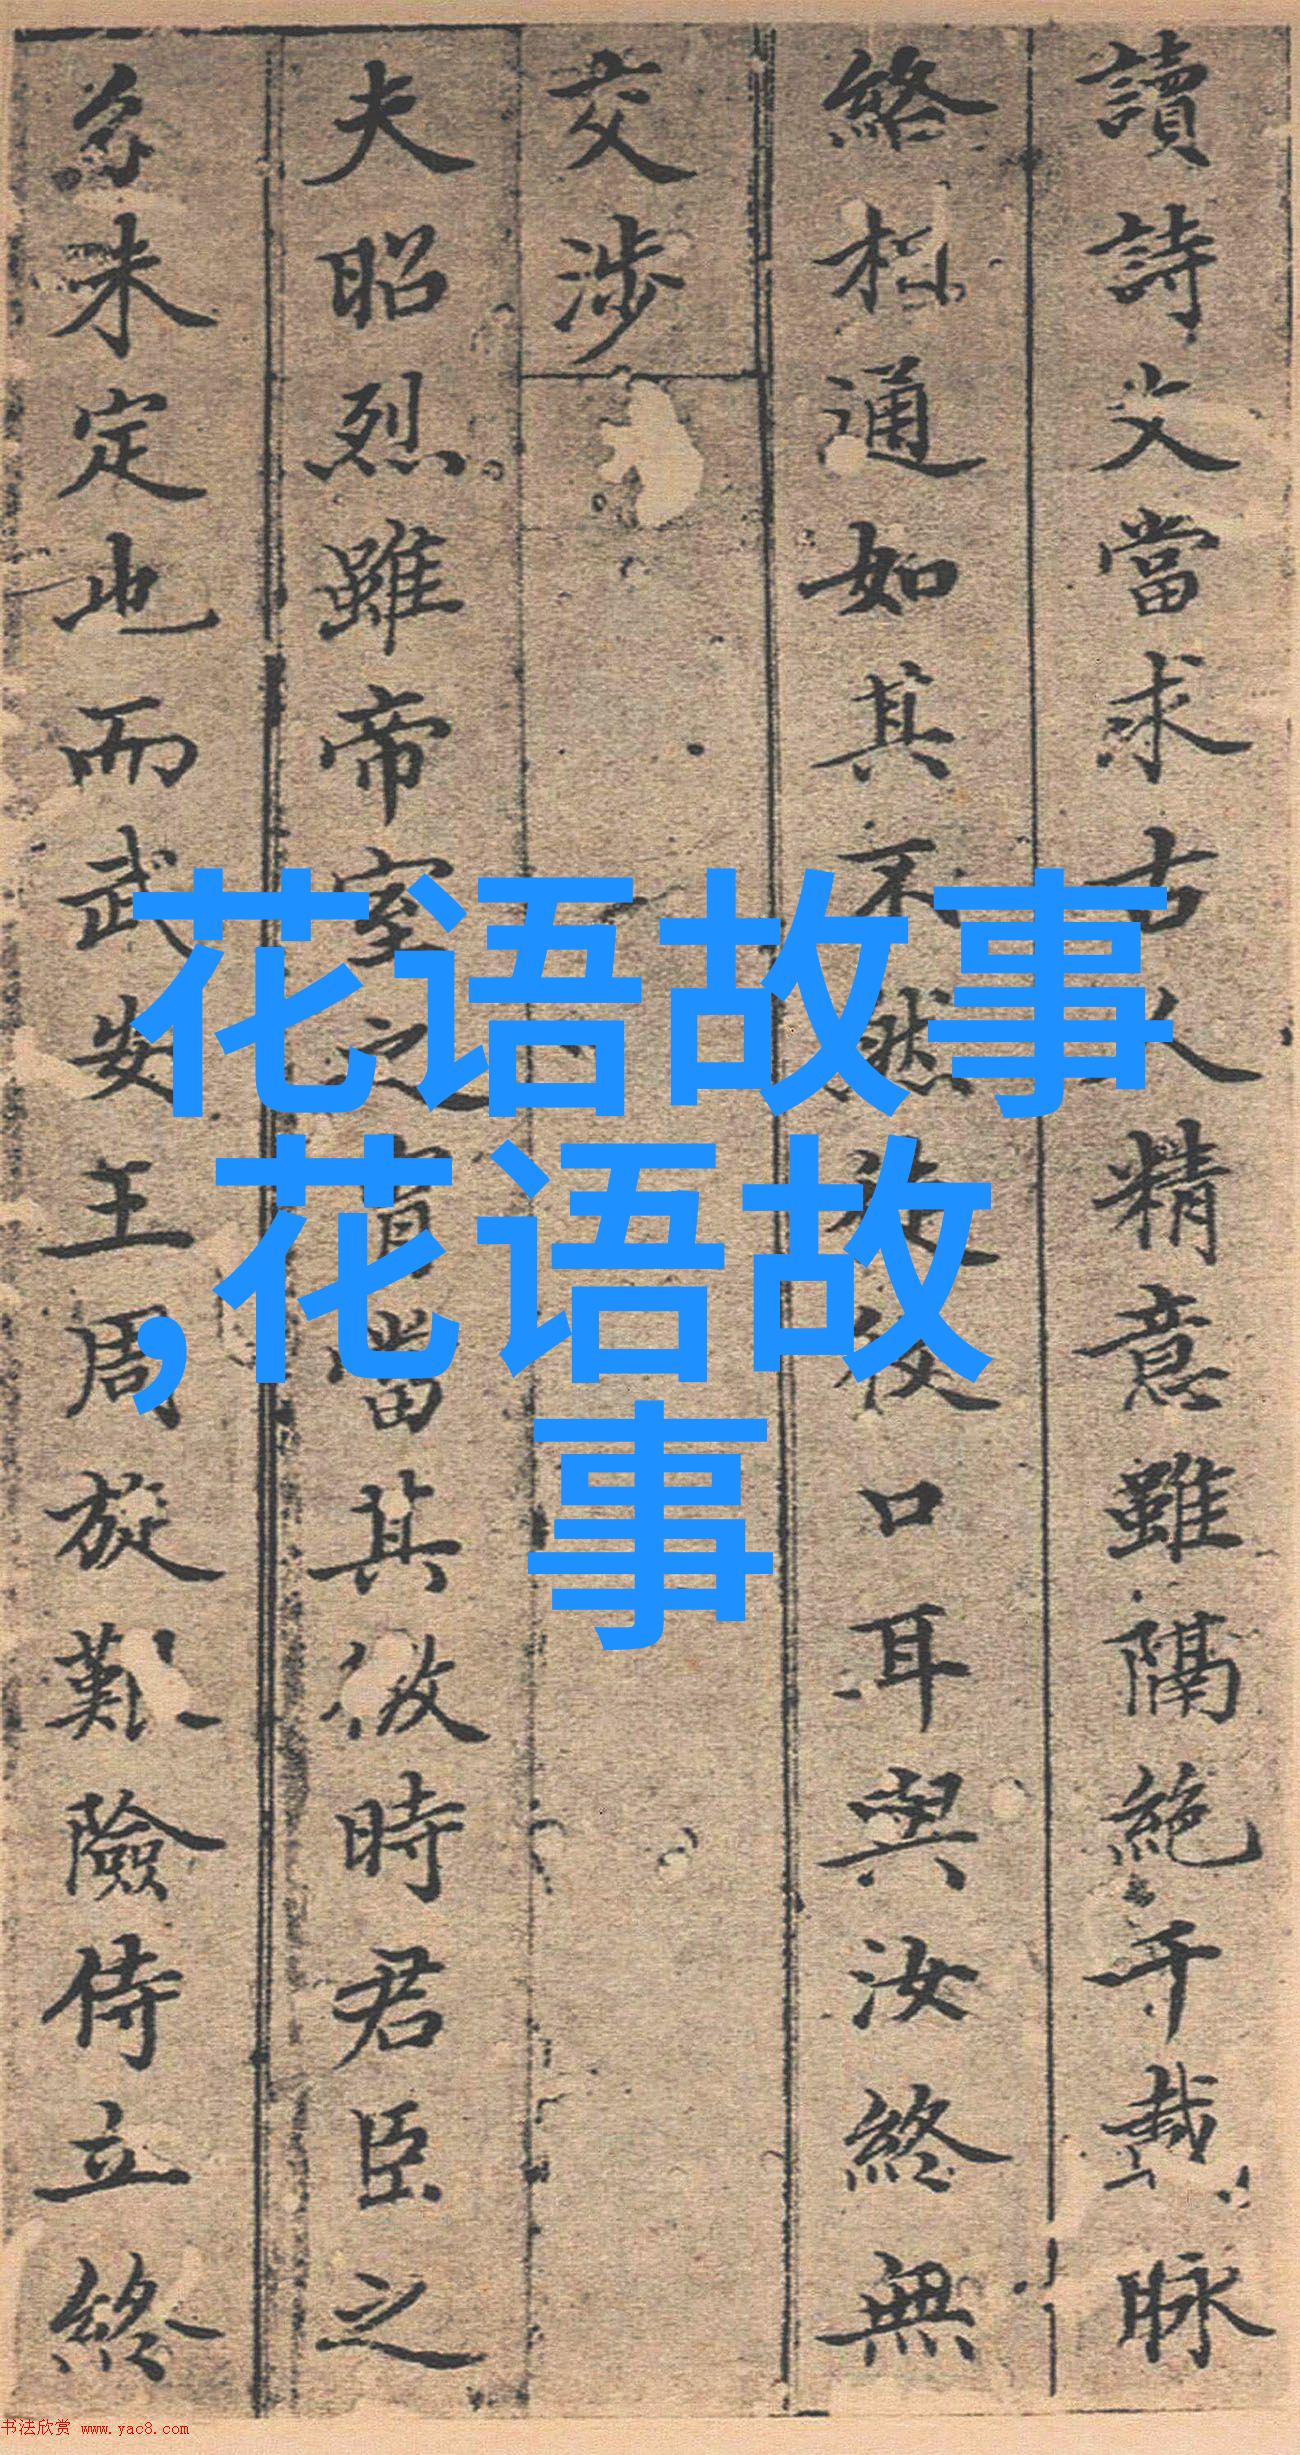 讀詩文當求古人精意雖隔絶千載脉
絡相通如其不然從口耳與汝終無
交涉
夫昭烈雖帝室之胄當其微時君臣之
名未定也而武安王周旋艱險侍立終
花语故事
,花语故
事
书法欣赏 www.yac8.com